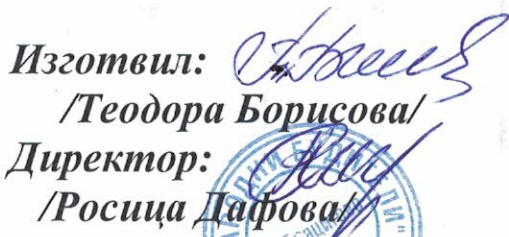 Изготвил:
/Теодора Борисова/
Директор:
/Росица Дафова/